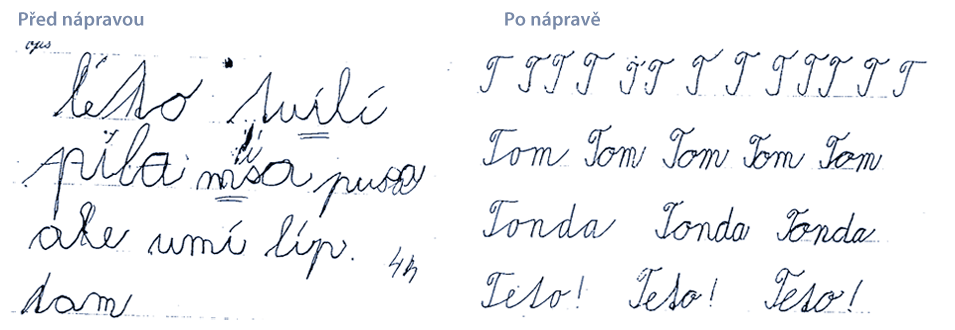 Před nápravou
opis
léto šuilí
píla míša pusa
ale umí líp. 4h
tam
Po nápravě
T T T T T T T T T T T T T
Tom Tom Tom Tom Tom
Tonda Tonda Tonda
Teto! Teto! Teto!